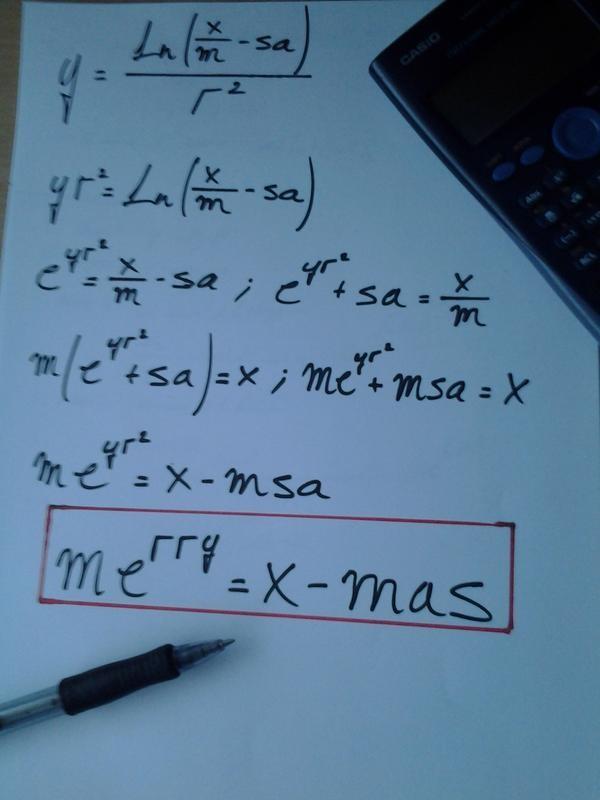 y = Ln(x/m - sa)/r²
yr² = Ln(x/m - sa)
e^yr² = x/m - sa ; e^yr² + sa = x/m
m(e^yr² + sa) = x ; me^yr² + msa = x
me^yr² = x - msa
me^rry = x - mas
CASIO